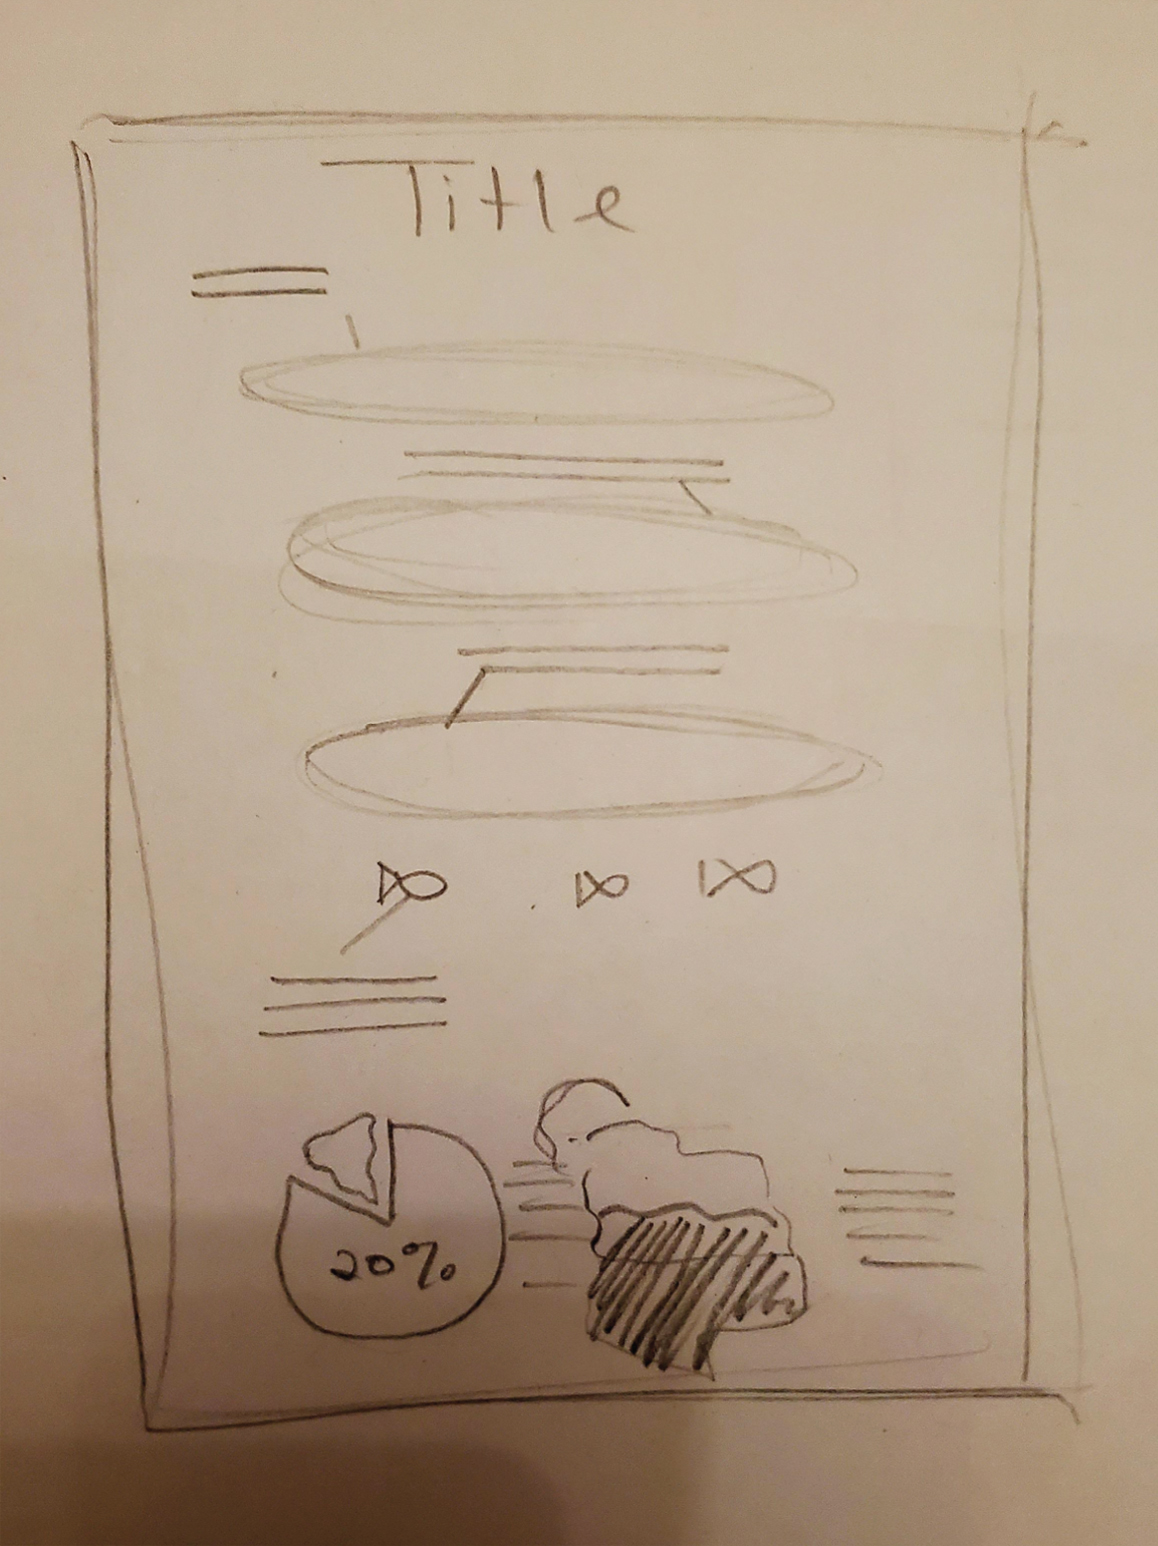 Title
20%